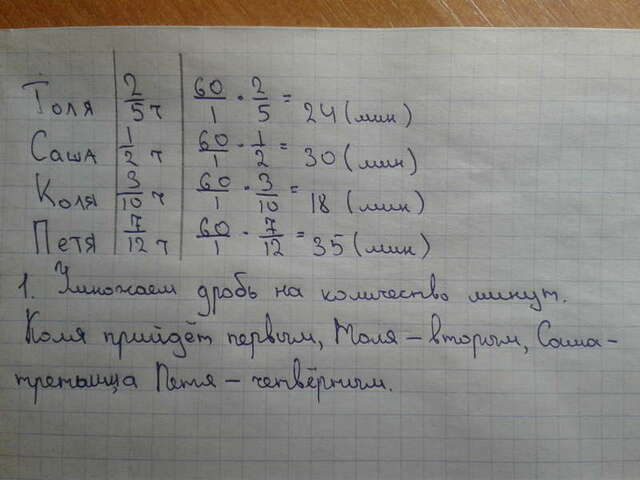 Толя 2/5 ч 60/1 · 2/5 = 24 (мин)
Саша 1/2 ч 60/1 · 1/2 = 30 (мин)
Коля 3/10 ч 60/1 · 3/10 = 18 (мин)
Петя 7/12 ч 60/1 · 7/12 = 35 (мин)
1. Умножаем дробь на количество минут.
Коля прийдёт первым, Толя – вторым, Саша –
третьим, а Петя – четвёртым.